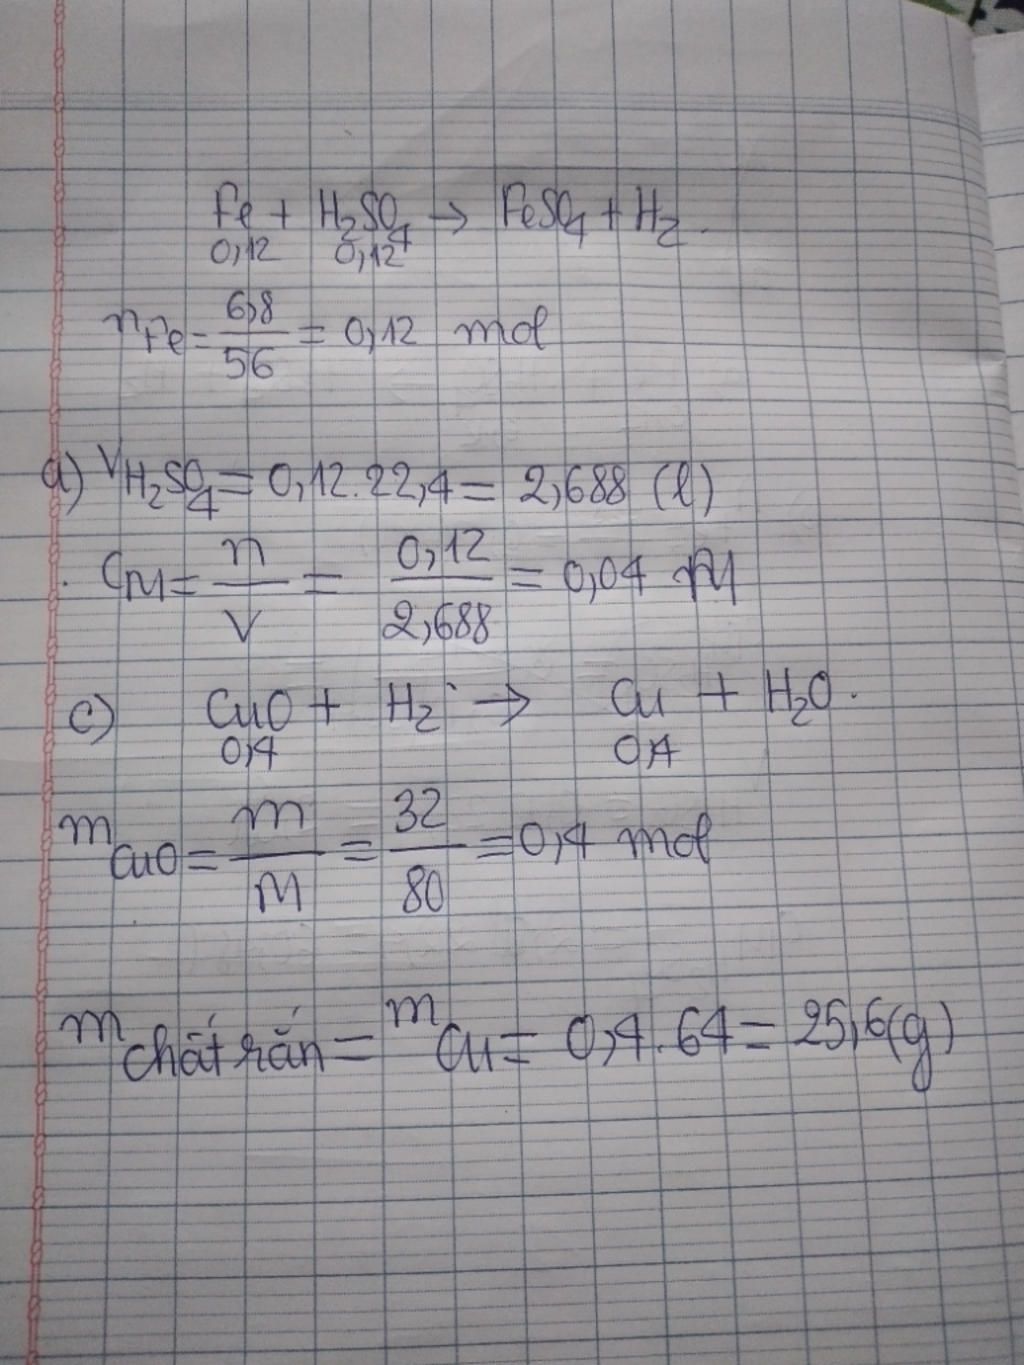 Fe + H₂SO₄ → FeSO₄ + H₂.
0,12 0,12
nFe = 6,8/56 = 0,12 mol
a) VH₂SO₄ = 0,12.22,4 = 2,688 (l)
. CM = n/V = 0,12/2,688 = 0,04 M
c) CuO + H₂ → Cu + H₂O.
0,4 0,4
mCuO = m/M = 32/80 = 0,4 mol
mchất rắn = mCu = 0,4.64 = 25,6(g)